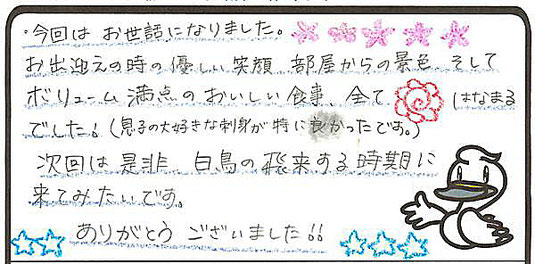 ・今回は お世話になりました。
お出迎えの時の優しい笑顔、部屋からの景色、そして
ボリューム満点のおいしい食事、全て はなまる
でした！(息子の大好きな刺身が特に良かったです。)
次回は是非、白鳥の飛来する時期に
来てみたいです。
ありがとう ございました!!